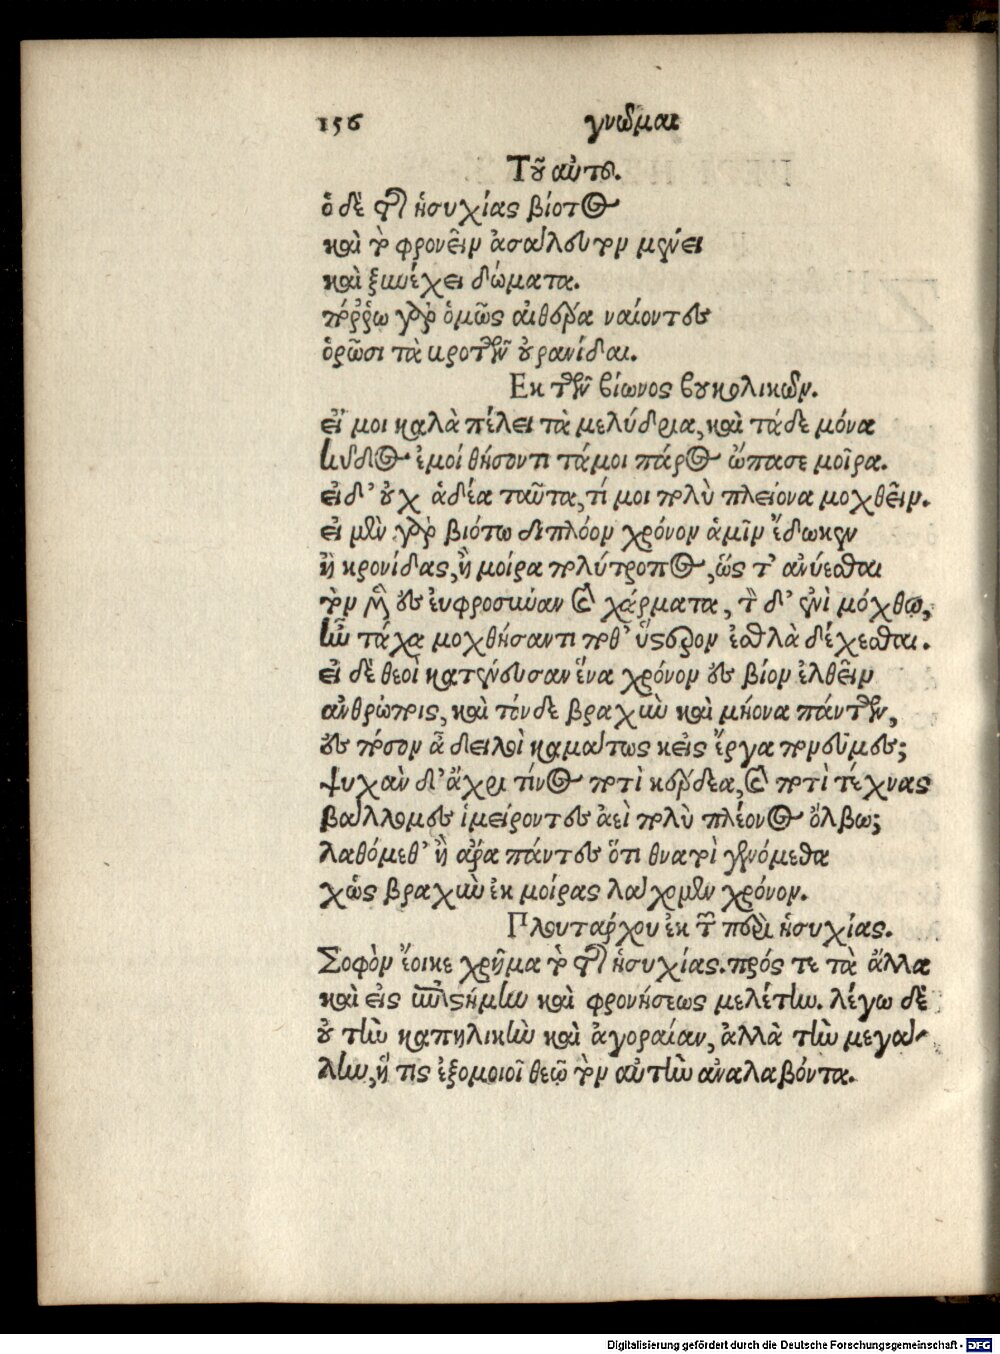 156 γνῶμαι
Τοῦ αὐτοῦ.
ὁ δὲ τῆς ἡσυχίας βίοτος
καὶ τὸ φρονεῖν ἀσάλευτον μένει
καὶ ξυνέχει δώματα.
πόῤῥω γὰρ ὁμῶς αἰθέρα ναίοντες
ὁρῶσι τὰ βροτῶν οὐρανίδαι.
Εκ τῶν βίωνος βουκολικῶν.
εἴ μοι καλὰ πέλει τὰ μελύδρια, καὶ τάδε μόνα
κῦδος ἐμοί θήσοντι τά μοι πάρος ὤπασε μοῖρα.
εἰ δ' οὐχ ἁδέα ταῦτα, τί μοι πολὺ πλείονα μοχθεῖν.
εἰ μὲν γὰρ βιότω διπλόον χρόνον ἁμῖν ἔδωκεν
ἢ κρονίδας, ἢ μοίρα πολύτροπος, ὥς τ' ἀνύεσθαι
τὸν μὲν ἐς ἐυφροσύναν καὶ χάρματα, τὸν δ' ἐνὶ μόχθῳ,
ἦν τάχα μοχθήσαντι ποθ' ὕστερον ἐσθλὰ δέχεσθαι.
εἰ δὲ θεοὶ κατένευσαν ἕνα χρόνον ἐς βίον ἐλθεῖν
ἀνθρώποις, καὶ τόνδε βραχὺν καὶ μήονα πάντων,
ἐς πόσον ἆ δειλοὶ καμάτως κεἰς ἔργα πονεῦμες;
ψυχὰν δ' ἄχρι τίνος ποτὶ κέρδεα, καὶ ποτὶ τέχνας
βάλλομες ἱμείροντες ἀεὶ πολὺ πλέονος ὄλβω;
λαθόμεθ' ἢ ἄρα πάντες ὅτι θνατοὶ γενόμεθα
χὡς βραχὺν ἐκ μοίρας λάχομεν χρόνον.
Πλουτάρχου ἐκ τοῦ περὶ ἡσυχίας.
Σοφὸν ἔοικε χρῆμα τὸ τῆς ἡσυχίας. πρός τε τὰ ἄλλα
καὶ εἰς ἐπιστήμην καὶ φρονήσεως μελέτην. λέγω δὲ
οὐ τὴν καπηλικὴν καὶ ἀγοραίαν, ἀλλὰ τὴν μεγά-
λην, ἥ τις ἐξομοιοῖ θεῷ τὸν αὐτὴν ἀναλαβόντα.
Digitalisierung gefördert durch die Deutsche Forschungsgemeinschaft - DFG